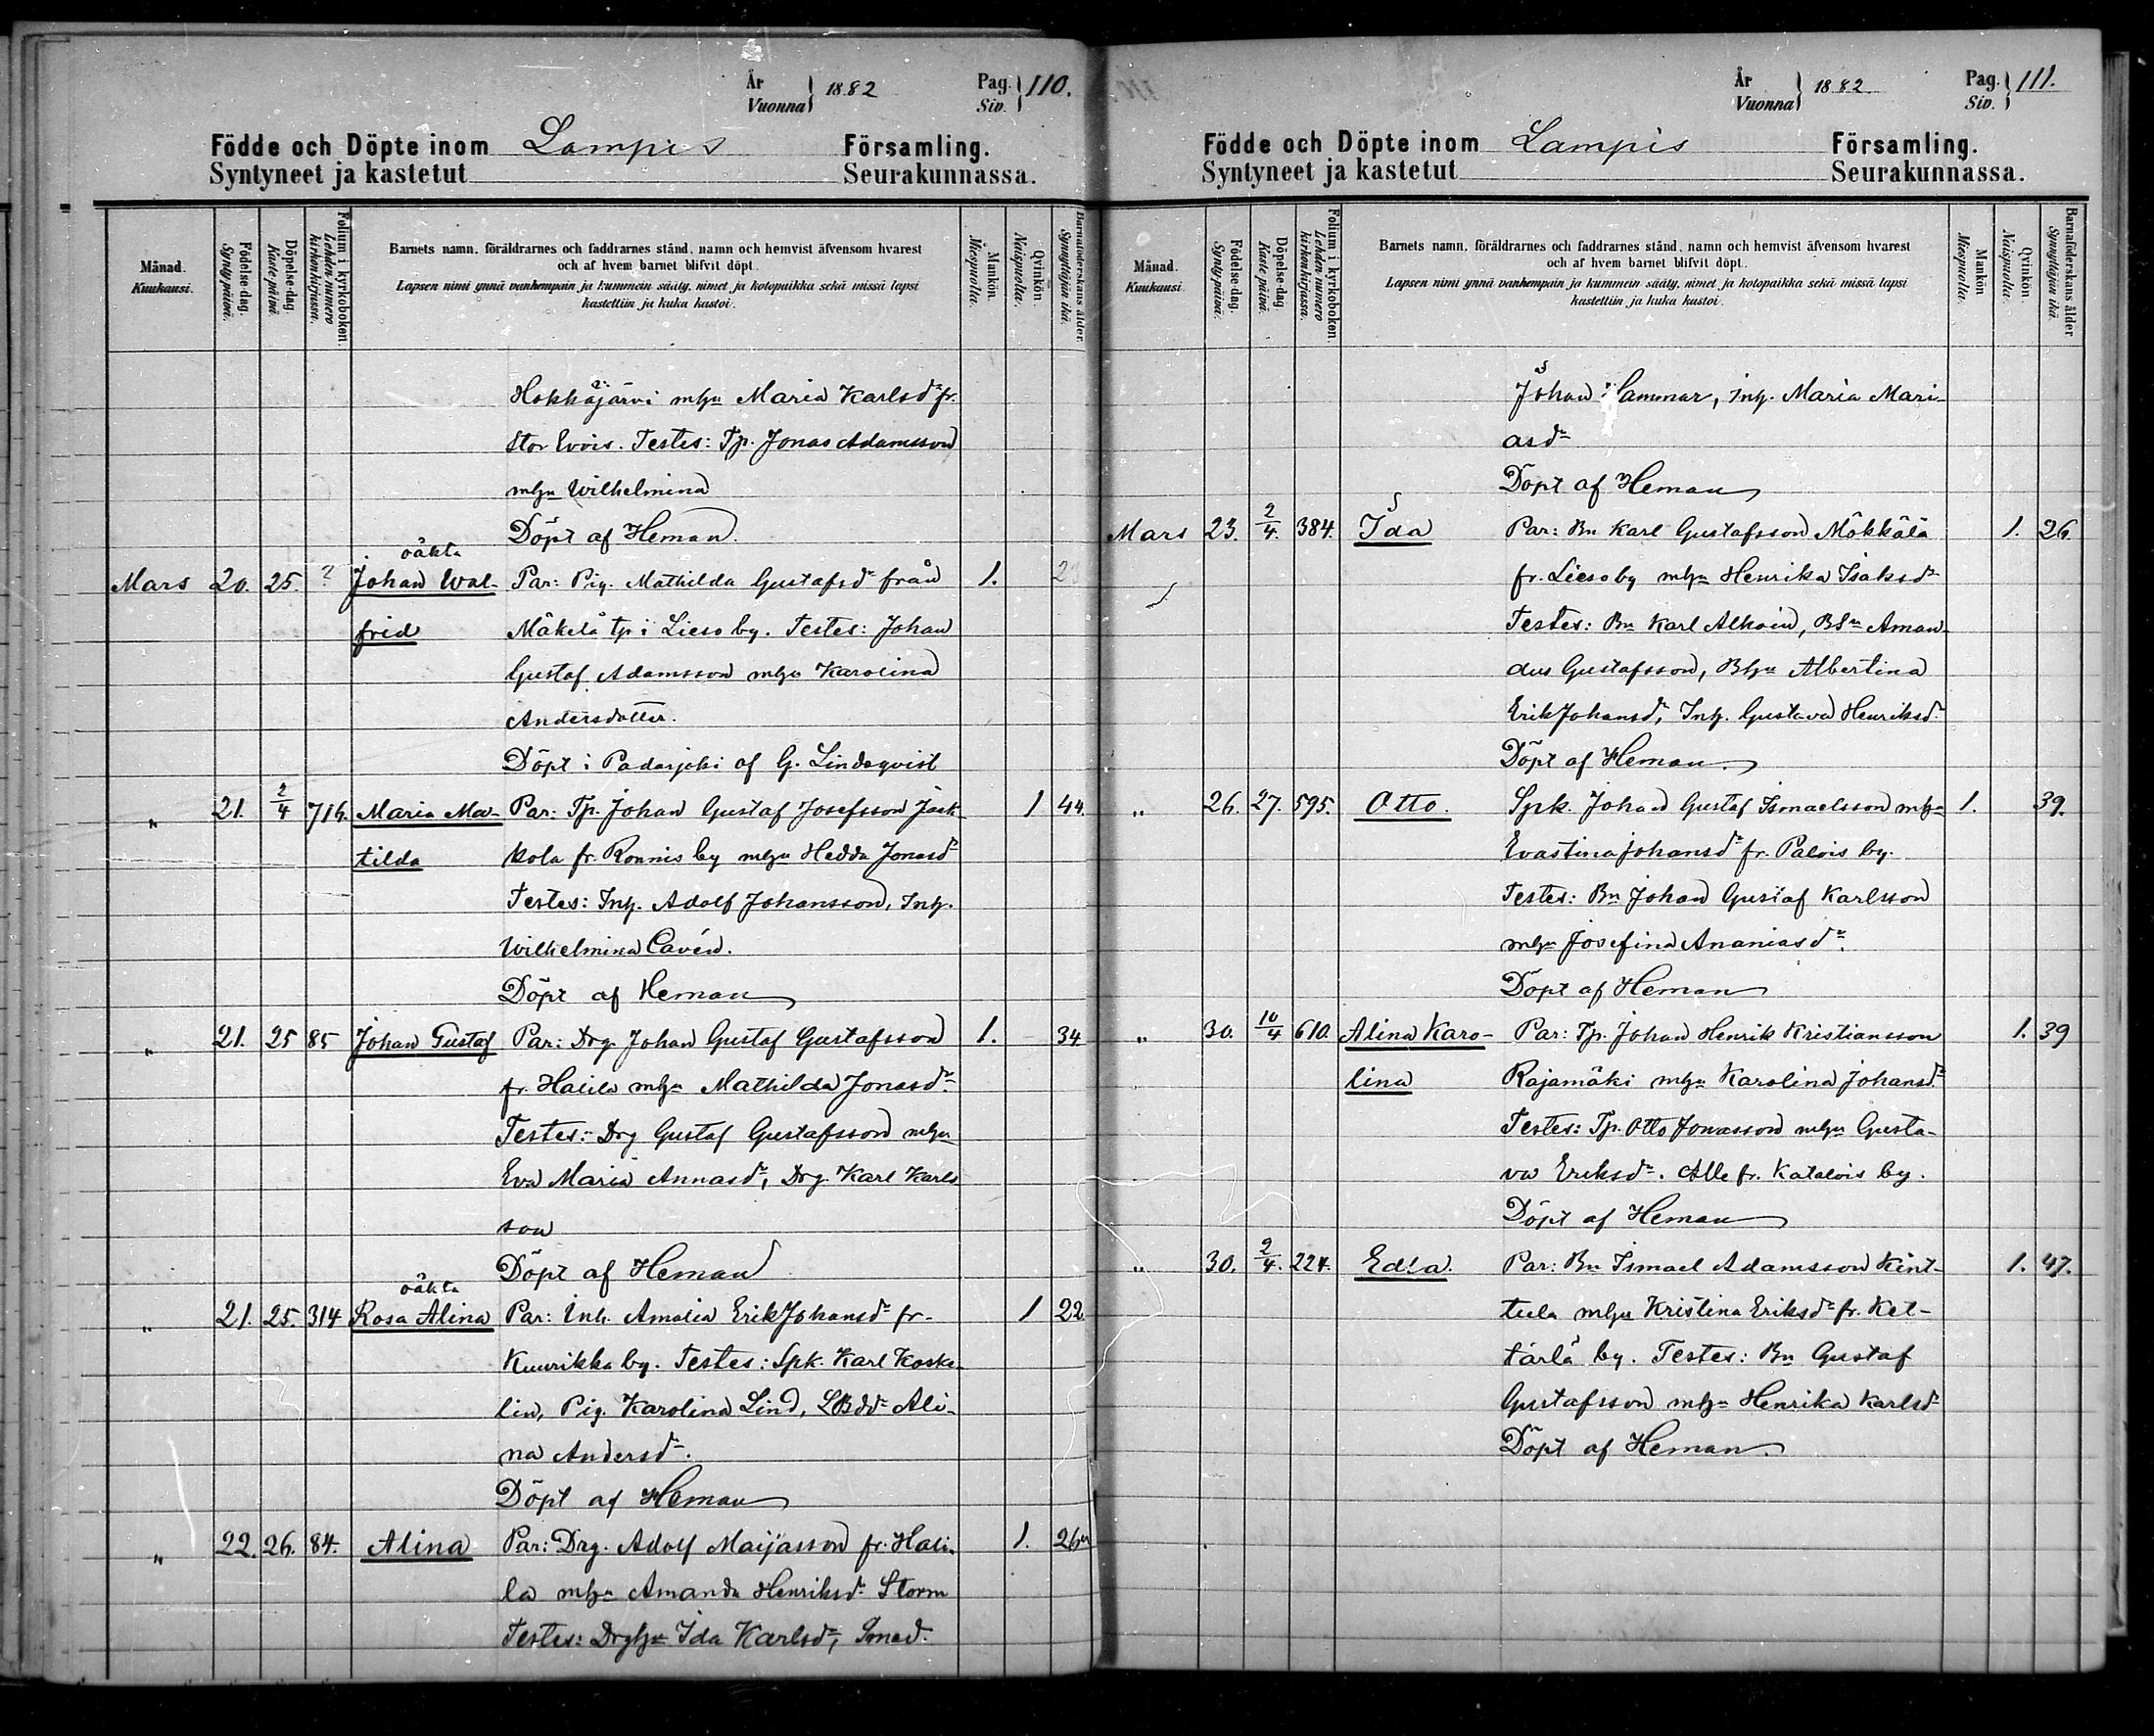 År
Vuonna
1882
Pag.
Siv.
110.
Födde och Döpte inom Lampis Församling.
Syntyneet ja kastetut Seurakunnassa.
Månad.
Kuukausi.
Födelse-dag.
Synty päivä.
Döpelse-dag.
Kaste päivä.
Folium i kyrkoboken.
Lehden numero
kirkonkirjassa.
Barnets namn, föräldrarnes och faddrarnes stånd, namn och hemvist äfvensom hvarest
och af hvem barnet blifvit döpt.
Lapsen nimi ynnä vanhempain ja kummein sääty, nimet ja kotopaikka sekä missä lapsi
kastettiin ja kuka kastoi.
Mankön.
Miespuolia.
Qvinkön.
Naispuolia.
Barnaföderskans ålder.
Synnyttäjän ikä.
Hokkäjärvi mhu Maria Karlsdr fr.
Stor Evois. Testes: Tp. Jonas Adamsson
mhu Wilhelmina
Döpt af Heman.
oäkta
Mars 20. 25. ? Johan Wal- Par: Pig. Mathilda Gustafsdr från 1.
frid Mäkelä tp i Lieso by. Testes: Johan
Gustaf Adamsson mhu Karolina
Andersdotter.
Döpt i Padasjoki af G. Lindeqvist
" 21. 2/4 716. Maria Ma- Par: Tp. Johan Gustaf Josefsson Jask- 1 44.
tilda kola fr. Ronnis by mhu Hedda Jonasdr
Testes: Inh. Adolf Johansson, Inh.
Wilhelmina Cavén.
Döpt af Heman
" 21. 25 85 Johan Gustaf Par: Drg. Johan Gustaf Gustafsson 1. 34
fr. Halila mhu Mathilda Jonasdr
Testes: Drg Gustaf Gustafsson mhu
Eva Maria Annasdr, Drg. Karl Karls
son
Döpt af Heman
oäkta
" 21. 25. 314 Rosa Alina Par: Inh. Amalia ErikJohansdr fr. 1 22
Kuurikka by. Testes: Spk. Karl Koske
lin, Pig. Karolina Lind, LBddr Ali-
na Andersdr.
Döpt af Heman
" 22. 26. 84. Alina Par: Drg. Adolf Maijasson fr. Hali- 1. 26
la mhu Amanda Henriksdr Storm
Testes: Drghu Ida Karlsdr, Smed.
År
Vuonna
1882.
Pag.
Siv.
111.
Födde och Döpte inom Lampis Församling.
Syntyneet ja kastetut Seurakunnassa.
Månad.
Kuukausi.
Födelse-dag.
Synty päivä.
Döpelse-dag.
Kaste päivä.
Folium i kyrkoboken.
Lehden numero
kirkonkirjassa.
Barnets namn, föräldrarnes och faddrarnes stånd, namn och hemvist äfvensom hvarest
och af hvem barnet blifvit döpt.
Lapsen nimi ynnä vanhempain ja kummein sääty, nimet ja kotopaikka sekä missä lapsi
kastettiin ja kuka kastoi.
Mankön
Miespuolia.
Qvinkön.
Naispuolia.
Barnaföderskans ålder
Synnyttäjän ikä.
Johan Sammar, Inh. Maria Mari-
asdr
Döpt af Heman
Mars 23. 2/4. 384. Ida Par: Bn Karl Gustafsson Mökkälä 1. 26
fr. Lieso by mhu Henrika Isaksdr
Testes: Bn Karl Alhoin, BSn Aman-
dus Gustafsson, Bhu Albertina
ErikJohansdr, Inh. Gustava Henriksdr
Döpt af Heman.
" 26. 27. 595. Otto. Spk. Johan Gustaf Ismaelsson mhu 1. 39.
Evastina Johansdr fr. Palois by.
Testes: Bn Johan Gustaf Karlsson
mhu Josefina Ananiasdr.
Döpt af Heman
" 30. 10/4 610. Alina Karo- Par: Tp. Johan Henrik Kristiansson 1. 39
lina Rajamäki mhu Karolina Johansdr
Testes: Tp. Otto Jonasson mhu Gusta-
va Eriksdr. Alle fr. Katalois by.
Döpt af Heman
" 30. 2/4. 224. Edla. Par: Bn Ismael Adamsson Kint- 1. 47.
tula mhu Kristina Eriksdr fr. Ket-
tärlä by. Testes: Bn Gustaf
Gustafsson mhu Henrika Karlsdr
Döpt af Heman.